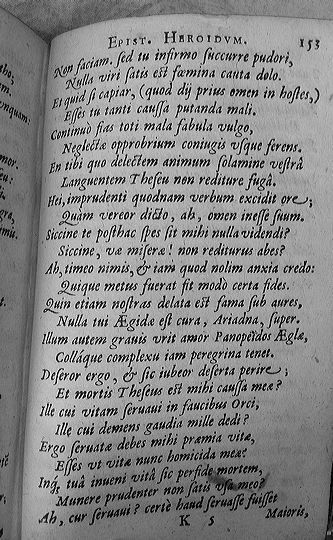 EPIST. HEROIDVM. 153
Non faciam. sed tu infirmo succurre pudori,
Nulla viri satis est fœmina cauta dolo.
Et quid si capiar, (quod dij prius omen in hostes,)
Esses tu tanti caussa putanda mali.
Continuò fias toti mala fabula vulgo,
Neglectæ opprobrium coniugis vsque ferens.
En tibi quo delectem animum solamine vestrâ
Languentem Theseu non rediture fugâ.
Hei, imprudenti quodnam verbum excidit ore;
Quàm vereor dicto, ah, omen inesse suum.
Siccine te posthac spes sit mihi nulla videndi?
Siccine, væ miseræ! non rediturus abes?
Ah, timeo nimis, & iam quod nolim anxia credo:
Quique metus fuerat fit modò certa fides.
Quin etiam nostras delata est fama sub aures,
Nulla tui Ægidæ est cura, Ariadna, super.
Illum autem grauis vrit amor Panopeïdos Æglæ,
Collàque complexu iam peregrina tenet.
Deseror ergo, & sic iubeor deserta perire;
Et mortis Theseus est mihi caussa meæ?
Ille cui vitam seruaui in faucibus Orci,
Ille cui demens gaudia mille dedi?
Ergo seruatæ debes mihi præmia vitæ,
Esses vt vitæ nunc homicida meæ?
Inq; tuâ inueni vitâ sic perfide mortem,
Munere prudenter non satis vsa meo?
Ah, cur seruaui? certè haud seruasse fuisset
K 5 Maioris,